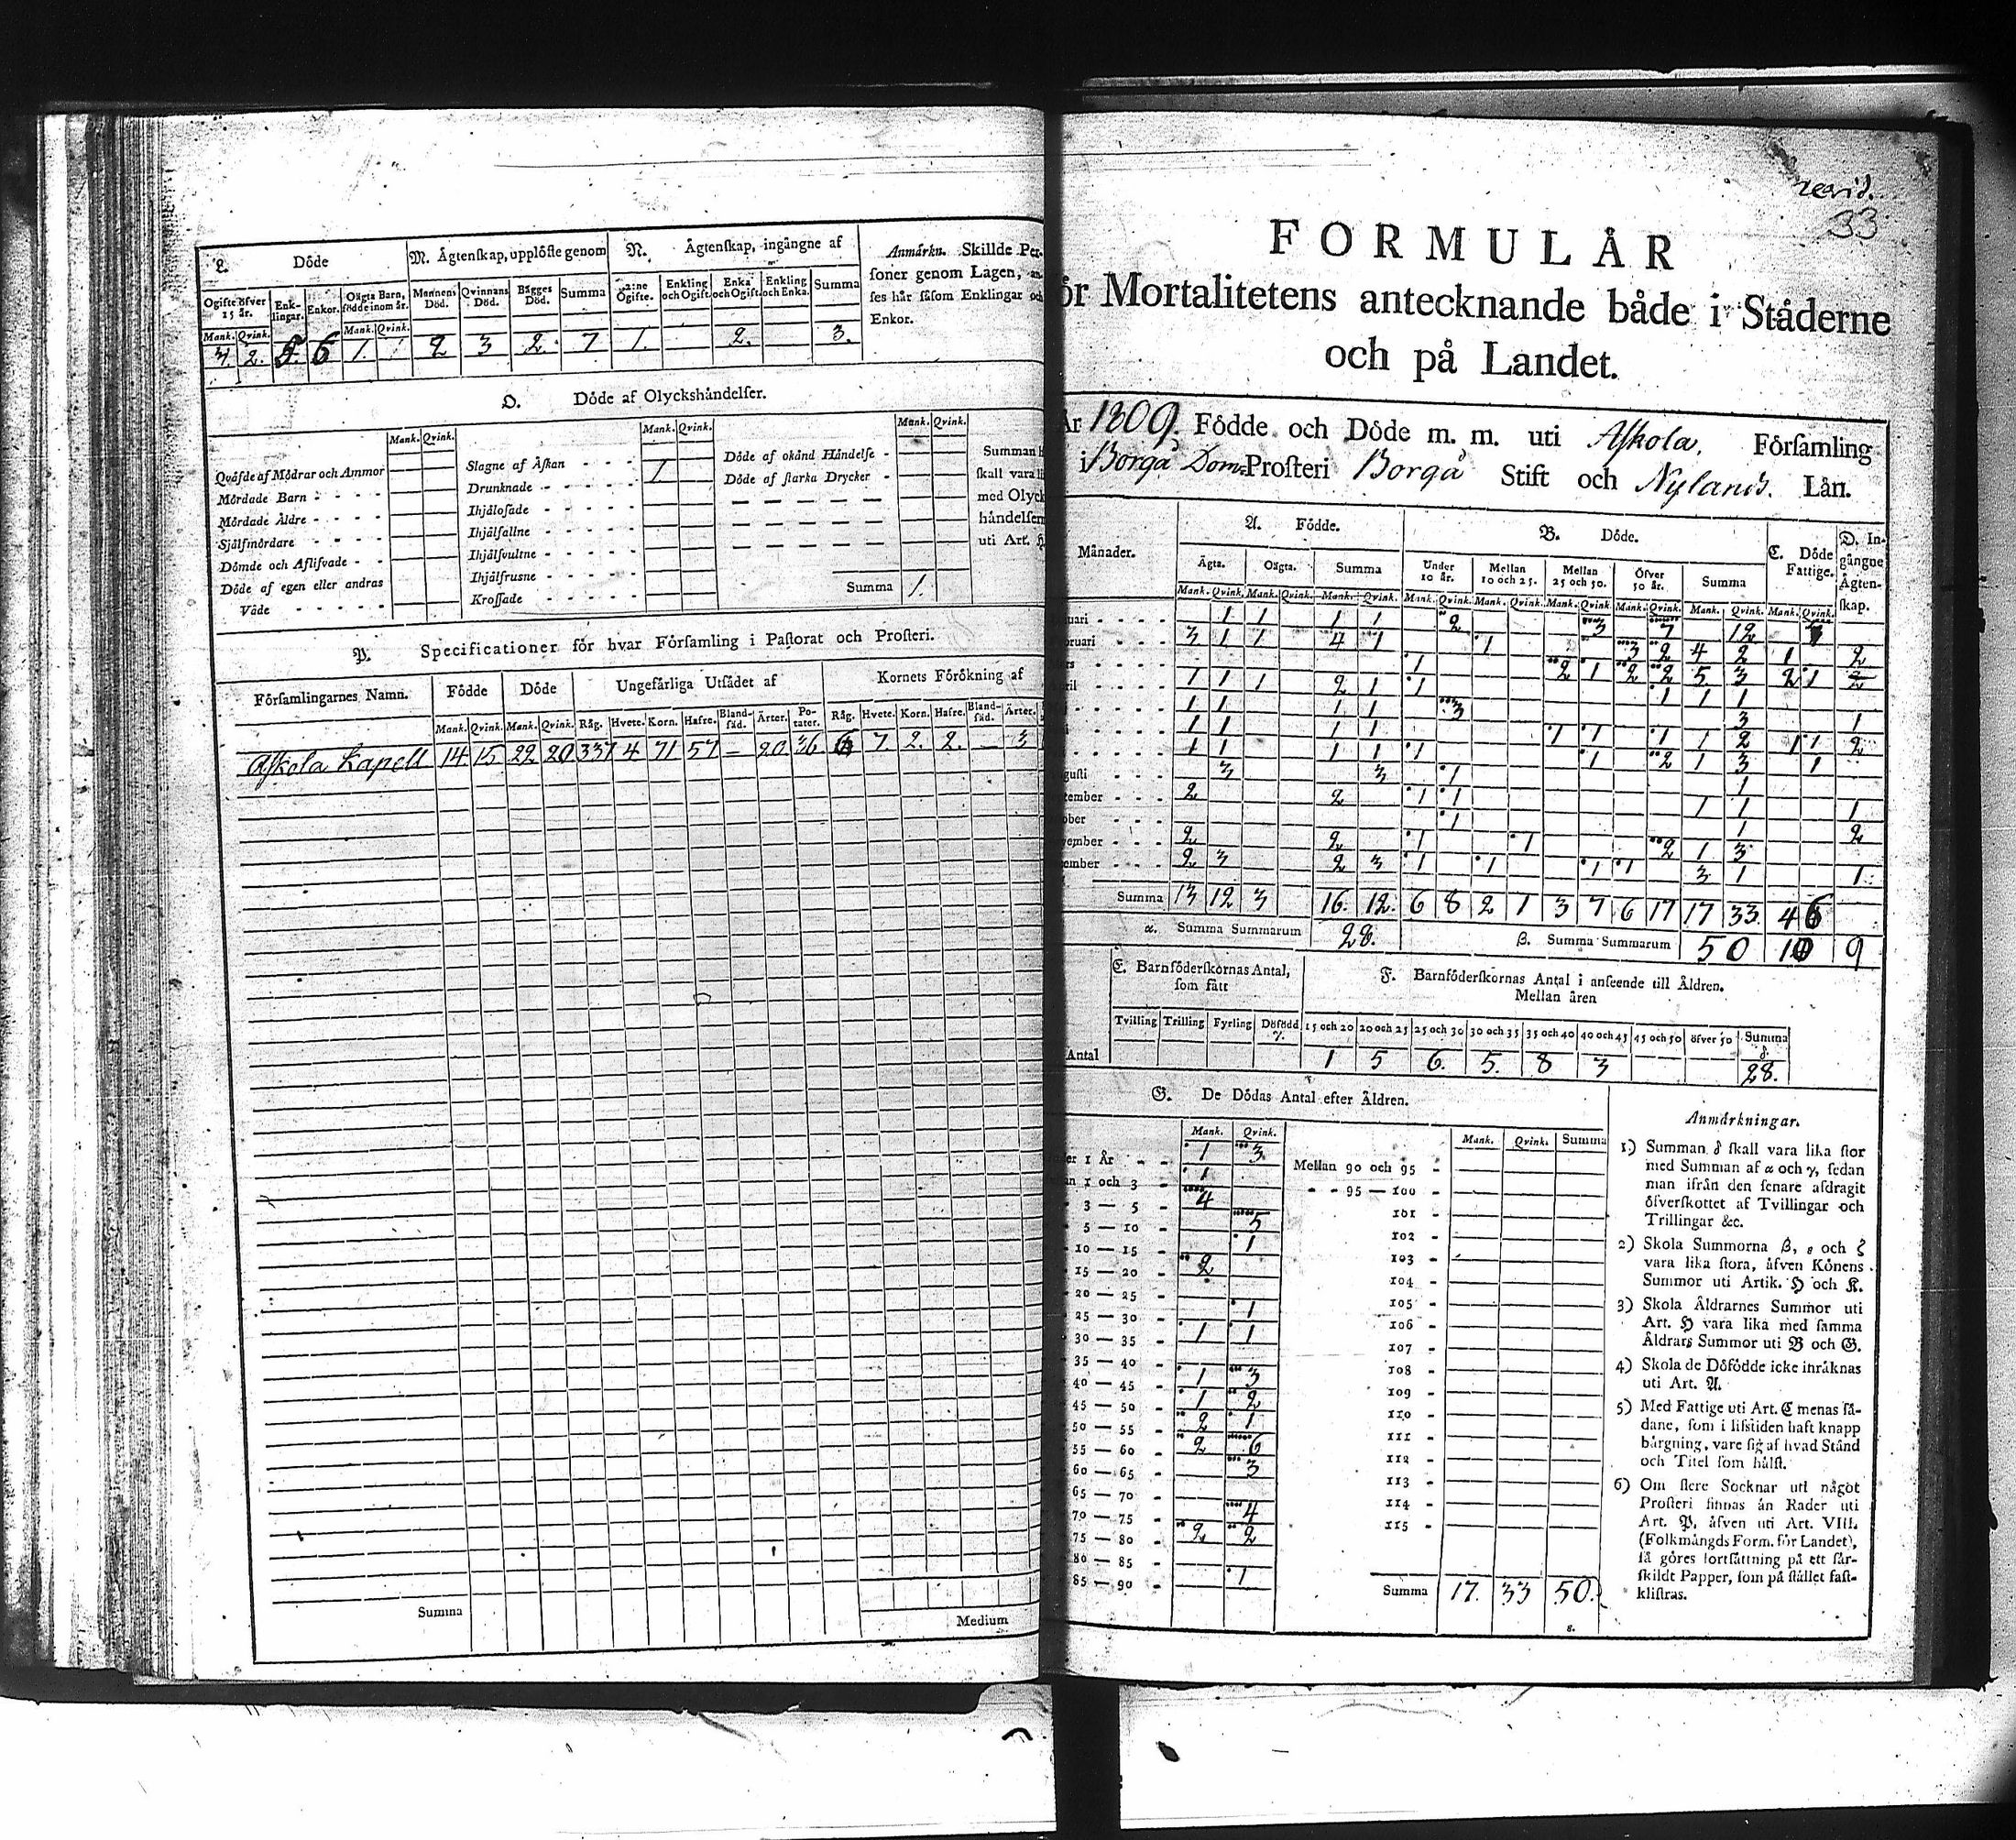 L. Döde
M. Ägtenskap, upplöste genom
N. Ägtenskap, ingångne af
Ogifte öfver 15 år. | Enklingar. | Enkor. | Oägta Barn, födde inom år. | Mannens Död. | Qvinnans Död. | Bägges Död. | Summa | 2:ne Ogifte. | Enkling och Ogift. | Enka och Ogift. | Enkling och Enka. | Summa
Mank. Qvink. Mank. Qvink.
2. 6 1. 2 3 2. 7 1. 2. 3.
Anmärkn. Skillde Per-
soner genom Lagen,
ses här såsom Enklingar och
Enkor.
O. Döde af Olyckshändelser.
Mank. Qvink. Mank. Qvink. Mank. Qvink.
Qväfde af Mödrar och Ammor
Mördade Barn
Mördade Äldre
Självmördare
Dömde och Aflifvade
Döde af egen eller andras
Våde
Slagne af Åskan
Drunknade 1
Ihjälosade
Ihjälfallne
Ihjälsvultne
Ihjälfrusne
Krossade
Döde af okänd Händelse
Döde af starka Drycker
Summa 1.
Summan
skall vara
med Olyck
händelsen
uti Art. H
P. Specificationer för hvar Församling i Pastorat och Prosteri.
Församlingarnes Namn. | Födde | Döde | Ungefärliga Utsädet af | Kornets Förökning af
Mank. Qvink. Mank. Qvink. Råg. Hvete. Korn. Hafre. Bland-säd. Ärter. Po-tater. Råg. Hvete. Korn. Hafre. Bland-säd. Ärter.
Askola Capell 14 15 22 20 337 4 71 57 — 20 36 6 7. 2. 2. — 3
Summa
Medium
revid.
33
FORMULÄR
ör Mortalitetens antecknande både i Städerne
och på Landet.
År 1809. Födde och Döde m. m. uti Askola, Församling
i Borgå Dom-Prosteri Borgå Stift och Nylands. Län.
Månader. | A. Födde. | B. Döde. | C. Döde Fattige. | D. In-gångne Ägten-skap.
Ägta. Oägta. Summa Under 10 år. Mellan 10 och 25. Mellan 25 och 50. Öfver 50 år. Summa
Mank. Qvink. Mank. Qvink. Mank. Qvink. Mank. Qvink. Mank. Qvink. Mank. Qvink. Mank. Qvink. Mank. Qvink. Mank. Qvink.
uari 1 1 1 1 2 3 7 12
bruari 3 1 1 4 1 1 3 2 4 2 1 2
ars 1 2 1 2 2 5 3 2 1 2
pril 1 1 1 2 1 1 1 1 1
1 1 1 1 3 3 1
1 1 1 1 1 1 1 1 2 1 1 2
1 1 1 1 1 1 2 1 3 1
gusti 3 3 1 1
tember 2 2 1 1 1 1 1
ober 1 1 2
vember 2 2 1 1 2 1 3
ember 2 3 2 3 1 1 1 1 3 1 1
Summa 13 12 3 16. 12. 6 8 2 1 3 7 6 17 17 33. 4 6
α. Summa Summarum 28.
β. Summa Summarum 50 10 9
E. Barnföderskornas Antal,
som fått
F. Barnföderskornas Antal i anseende till Åldren.
Mellan åren
Tvilling Trilling Fyrling Dödfödd γ. 15 och 20 20 och 25 25 och 30 30 och 35 35 och 40 40 och 45 45 och 50 öfver 50 Summa δ.
Antal 1 5 6. 5. 8 3 28.
G. De Dödas Antal efter Åldren.
Mank. Qvink. Mank. Qvink. Summa
der 1 År 1 3
n 1 och 3 1
3 — 5 4
5 — 10 5
10 — 15 1
15 — 20 2
20 — 25
25 — 30 1
30 — 35 1 1
35 — 40
40 — 45 1 3
45 — 50 1 2
50 — 55 2 1
55 — 60 2 6
60 — 65 3
65 — 70
70 — 75 4
75 — 80 2 2
80 — 85
85 — 90 1
Mellan 90 och 95
95 — 100
101
102
103
104
105
106
107
108
109
110
111
112
113
114
115
Summa 17. 33 50.
ε.
Anmärkningar.
1) Summan δ skall vara lika stor
med Summan af α och γ, sedan
man ifrån den senare afdragit
öfverskottet af Tvillingar och
Trillingar &c.
2) Skola Summorna β, ε och ζ
vara lika stora, äfven Könens
Summor uti Artik. H och K.
3) Skola Åldrarnes Summor uti
Art. H vara lika med samma
Åldrars Summor uti B och G.
4) Skola de Döfödde icke inräknas
uti Art. A.
5) Med Fattige uti Art. C menas så-
dane, som i lifstiden haft knapp
bärgning, vare sig af hvad Stånd
och Titel som hälst.
6) Om flere Socknar uti något
Prosteri finnas än Rader uti
Art. P, äfven uti Art. VIII.
(Folkmängds Form. för Landet),
så göres fortsättning på ett sär-
skildt Papper, som på stället fast-
klistras.